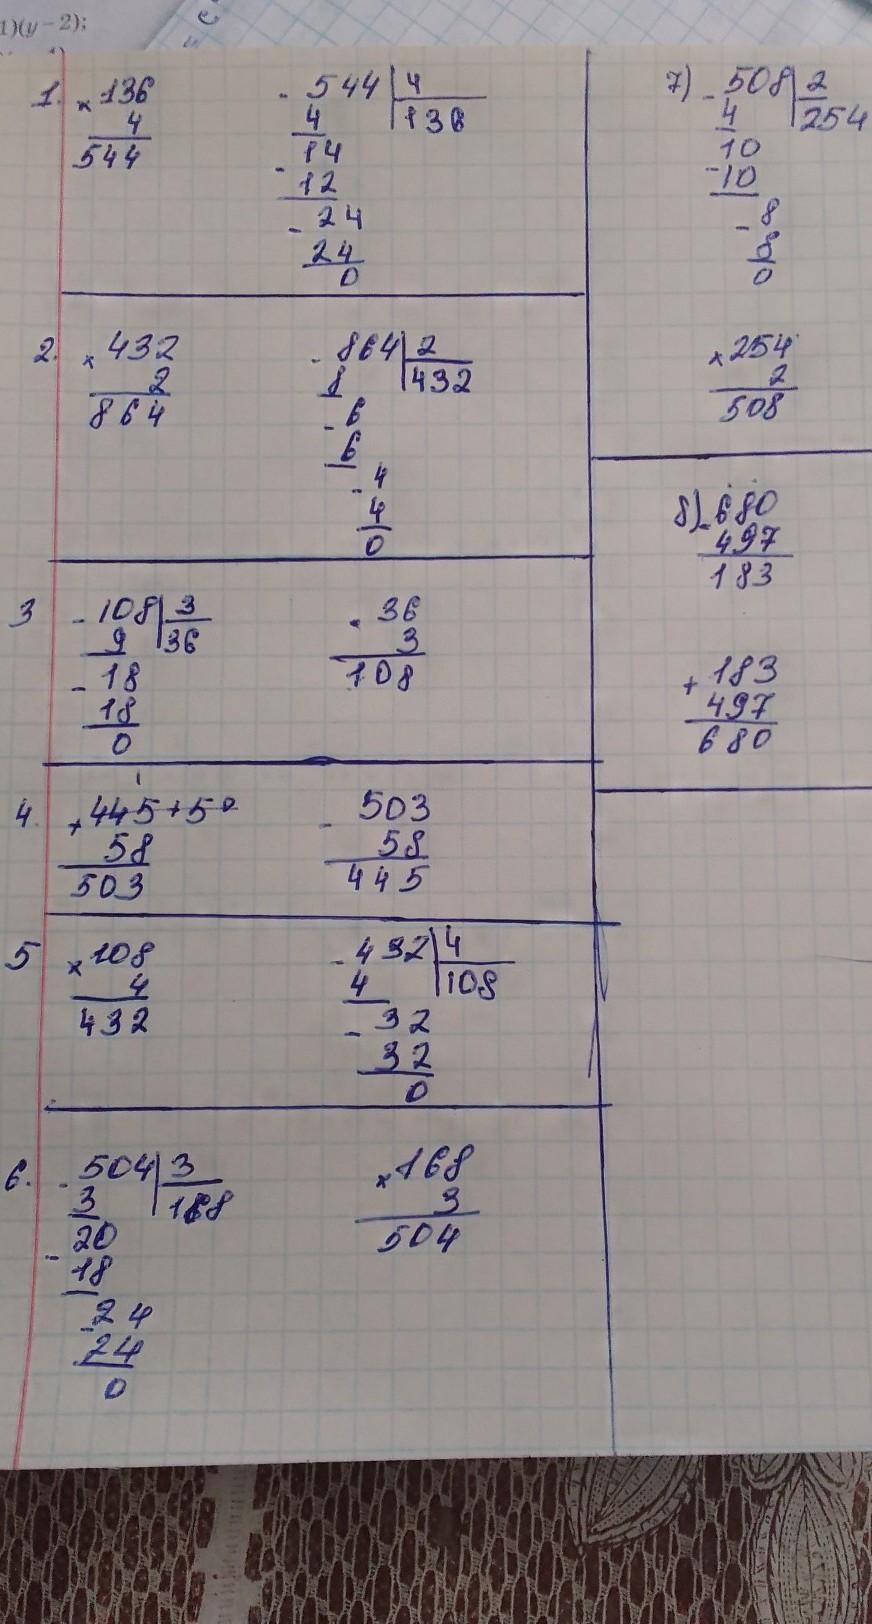 1)(y-2);
1. × 136
4
544
- 544 | 4
4 | 136
14
- 12
- 24
24
0
2. × 432
2
864
- 864 | 2
8 | 432
- 6
6
- 4
4
0
3 - 108 | 3
9 | 36
- 18
18
0
· 36
3
108
1
4. + 445+5
58
503
- 503
58
445
5 × 108
4
432
- 432 | 4
4 | 108
- 32
32
0
6. - 504 | 3
3 | 168
20
- 18
- 24
24
0
× 168
3
504
7) - 508 | 2
4 | 254
10
- 10
- 8
8
0
× 254
2
508
8) - 680
497
183
+ 183
497
680